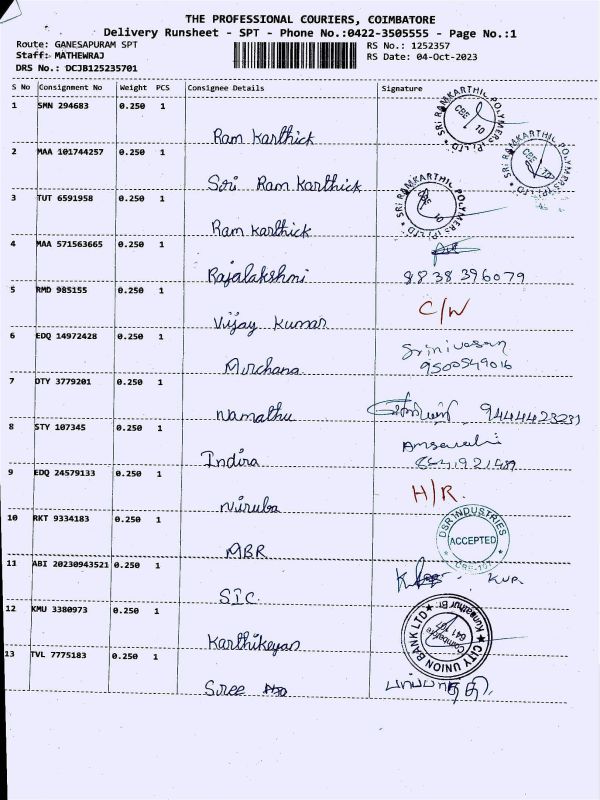 THE PROFESSIONAL COURIERS, COIMBATORE
Delivery Runsheet - SPT - Phone No.:0422-3505555 - Page No.:1
Route: GANESAPURAM SPT
Staff: MATHEWRAJ
DRS No.: DCJB125235701
RS No.: 1252357
RS Date: 04-Oct-2023
S No Consignment No Weight PCS Consignee Details Signature
1 SMN 294683 0.250 1
Ram Karthick
SRI RAMKARTHIC POLYMERS (P) LTD CBE 10
2 MAA 101744257 0.250 1
Sri Ram Karthick
SRI RAMKARTHIC POLYMERS (P) LTD CBE 10
3 TUT 6591958 0.250 1
Ram Karthick
SRI RAMKARTHIC POLYMERS (P) LTD 10
4 MAA 571563665 0.250 1
Rajalakshmi 8838396079
5 RMD 985155 0.250 1
Vijay Kumar C/W
6 EDQ 14972428 0.250 1
Archana Srinivasan
9500549016
7 DTY 3779201 0.250 1
Namathu
8 STY 107345 0.250 1
Indira
9 EDQ 24579133 0.250 1
Niruba H/R.
10 RKT 9334183 0.250 1
MBR
DSR INDUSTRIES ACCEPTED
11 ABI 20230943521 0.250 1
SIC
12 KMU 3380973 0.250 1
Karthikeyan
CITY UNION BANK LTD Kunnathur Br. Coimbatore 641 107
13 TVL 7775183 0.250 1
Sree